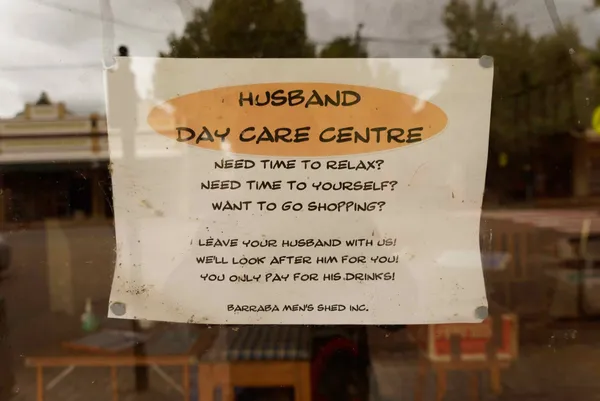 HUSBAND
DAY CARE CENTRE
NEED TIME TO RELAX?
NEED TIME TO YOURSELF?
WANT TO GO SHOPPING?
LEAVE YOUR HUSBAND WITH US!
WE'LL LOOK AFTER HIM FOR YOU!
YOU ONLY PAY FOR HIS DRINKS!
BARRABA MEN'S SHED INC.